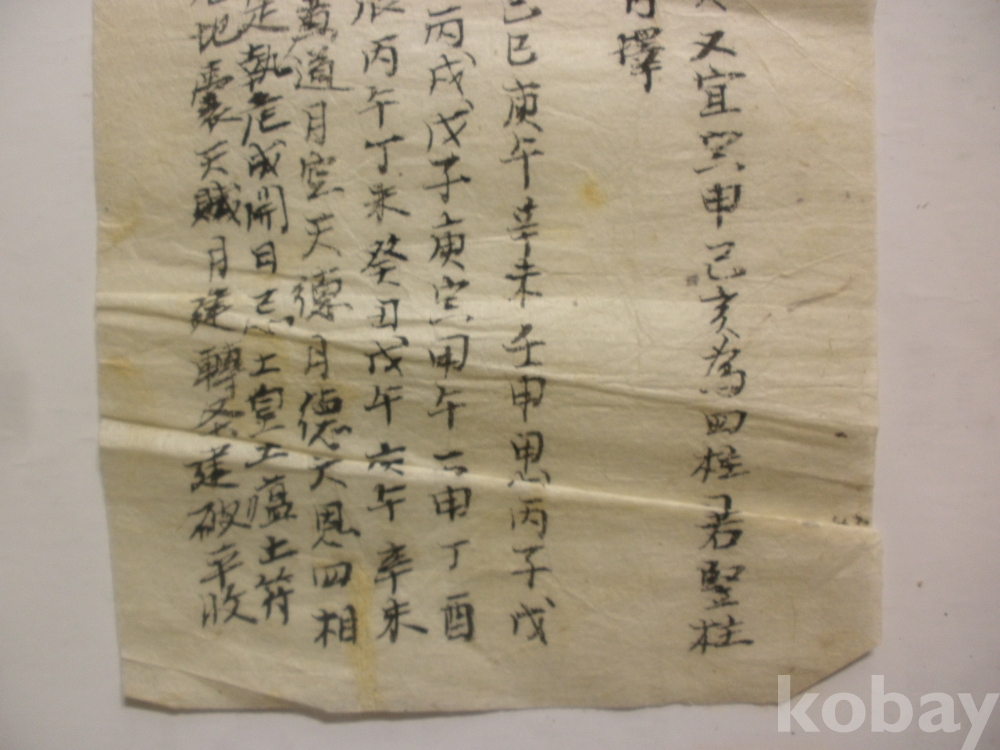 又宜寅申己亥為四柱若竪柱
擇
己巳庚午辛未壬申甲戌丙子戊
丙戌戊子庚寅甲午丙申丁酉
辰丙午丁未癸丑戊午庚午辛未
黃道月空天德月德天恩四相
定執危成開日忌土皇土瘟土符
地囊天賊月建轉殺建破平收
kobay